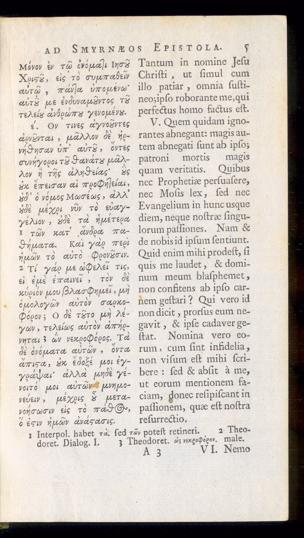 AD SMYRNÆOS EPISTOLA. 5
Μόνον ἐν τῷ ὀνόματι Ἰησοῦ
Χριστοῦ, εἰς τὸ συμπαθεῖν
αὐτῷ, πάντα ὑπομένω
αὐτοῦ με ἐνδυναμοῦντος τοῦ
τελείου ἀνθρώπου γενομένου.
έ. Ὅν τινες ἀγνοοῦντες
ἀρνοῦνται, μᾶλλον δὲ ἠρ-
νήθησαν ὑπ' αὐτοῦ, ὄντες
συνήγοροι τοῦ θανάτου μᾶλ-
λον ἢ τῆς ἀληθείας· οὓς
οὐκ ἔπεισαν αἱ προφητεῖαι,
οὐδ' ὁ νόμος Μωσέως, ἀλλ'
οὐδὲ μέχρι νῦν τὸ εὐαγ-
γέλιον, οὐδὲ τὰ ἡμέτερα
1 τῶν κατ' ἄνδρα πα-
θήματα. Καὶ γὰρ περὶ
ἡμῶν τὸ αὐτὸ φρονοῦσιν.
2 Τί γάρ με ὠφελεῖ τις,
εἰ ἐμὲ ἐπαινεῖ, τὸν δὲ
κύριόν μου βλασφημεῖ, μὴ
ὁμολογῶν αὐτὸν σαρκο-
φόρον; Ὁ δὲ τοῦτο μὴ λέ-
γων, τελείως αὐτὸν ἀπήρ-
νηται 3 ὢν νεκροφόρος. Τὰ
δὲ ὀνόματα αὐτῶν, ὄντα
ἄπιστα, οὐκ ἔδοξέ μοι ἐγ-
γράψαι· ἀλλὰ μηδὲ γέ-
νοιτό μοι αὐτῶν μνημο-
νεύειν, μέχρις οὗ μετα-
νοήσωσιν εἰς τὸ πάθος,
ὅ ἐστιν ἡμῶν ἀνάστασις.
Tantum in nomine Jesu
Christi, ut simul cum
illo patiar, omnia susti-
neo; ipso roborante me, qui
perfectus homo factus est.
V. Quem quidam igno-
rantes abnegant: magis au-
tem abnegati sunt ab ipso;
patroni mortis magis
quam veritatis. Quibus
nec Prophetiæ persuasere,
nec Mosis lex, sed nec
Evangelium in hunc usque
diem, neque nostræ singu-
lorum passiones. Nam &
de nobis id ipsum sentiunt.
Quid enim mihi prodest, si
quis me laudet, & domi-
num meum blasphemet,
non confitens ab ipso car-
nem gestari? Qui vero id
non dicit, prorsus eum ne-
gavit, & ipse cadaver ge-
stat. Nomina vero eo-
rum, cum sint infidelia,
non visum est mihi scri-
bere: sed & absit à me,
ut eorum mentionem fa-
ciam, donec resipiscant in
passionem, quæ est nostra
resurrectio.
1 Interpol. habet τὰ. sed τῶν potest retineri. 2 Theo-
doret. Dialog. I. 3 Theodoret. ὡς νεκροφόρον. male.
A 3 VI. Nemo